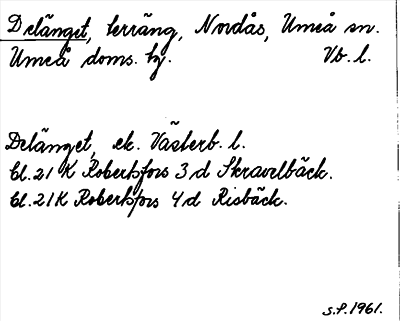 Delänget, terräng, Nordås, Umeå sn.
Umeå doms. hg. Vb. l.
Delänget, ek. Västerb. l.
bl. 21 K Robertsfors 3 d Skravelbäck.
bl. 21K Robertsfors 4d Risbäck.
S.P. 1961.